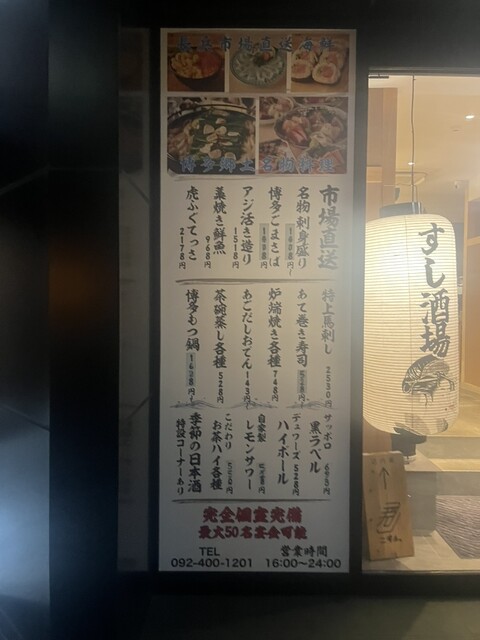 長浜市場直送海鮮
博多郷土名物料理
市場直送
名物刺身盛り
博多ごまさば
アジ活き造り 1518円
藁焼き鮮魚 968円
虎ふぐてっさ 2178円
特上馬刺し 2530円
あて巻き寿司
炉端焼き各種 748円
あごだしおでん 143円
茶碗蒸し各種 528円
博多もつ鍋
サッポロ
黒ラベル
デュワーズ
ハイボール 528円
自家製
レモンサワー
こだわり
お茶ハイ各種
季節の日本酒
特設コーナーあり
完全個室完備
最大50名宴会可能
TEL
092-400-1201
営業時間
16:00〜24:00
すし酒場